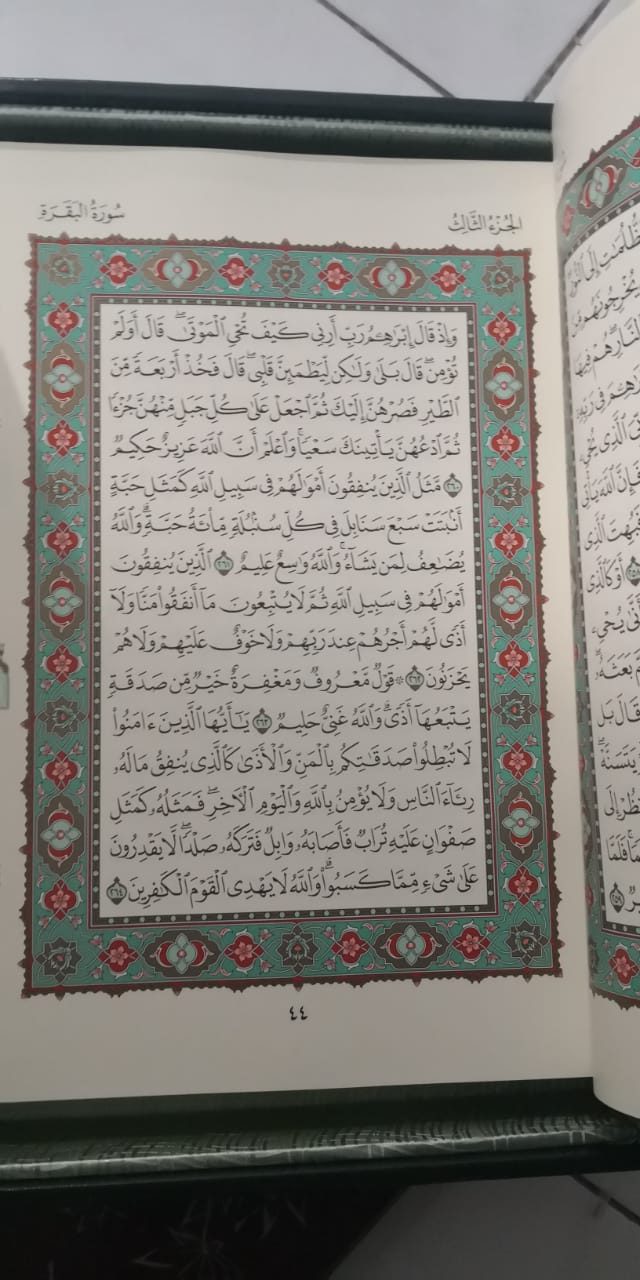 الجُزْءُ الثَّالِثُ
سُورَةُ البَقَرَةِ
وَإِذْ قَالَ إِبْرَٰهِـۧمُ رَبِّ أَرِنِى كَيْفَ تُحْىِ ٱلْمَوْتَىٰۖ قَالَ أَوَلَمْ
تُؤْمِنۖ قَالَ بَلَىٰ وَلَٰكِن لِّيَطْمَئِنَّ قَلْبِىۖ قَالَ فَخُذْ أَرْبَعَةً مِّنَ
ٱلطَّيْرِ فَصُرْهُنَّ إِلَيْكَ ثُمَّ ٱجْعَلْ عَلَىٰ كُلِّ جَبَلٍ مِّنْهُنَّ جُزْءًا
ثُمَّ ٱدْعُهُنَّ يَأْتِينَكَ سَعْيًاۚ وَٱعْلَمْ أَنَّ ٱللَّهَ عَزِيزٌ حَكِيمٌ
٢٦٠ مَّثَلُ ٱلَّذِينَ يُنفِقُونَ أَمْوَٰلَهُمْ فِى سَبِيلِ ٱللَّهِ كَمَثَلِ حَبَّةٍ
أَنۢبَتَتْ سَبْعَ سَنَابِلَ فِى كُلِّ سُنۢبُلَةٍ مِّا۟ئَةُ حَبَّةٍۗ وَٱللَّهُ
يُضَٰعِفُ لِمَن يَشَآءُۚ وَٱللَّهُ وَٰسِعٌ عَلِيمٌ ٢٦١ ٱلَّذِينَ يُنفِقُونَ
أَمْوَٰلَهُمْ فِى سَبِيلِ ٱللَّهِ ثُمَّ لَا يُتْبِعُونَ مَآ أَنفَقُوا۟ مَنًّا وَلَآ
أَذًىۙ لَّهُمْ أَجْرُهُمْ عِندَ رَبِّهِمْ وَلَا خَوْفٌ عَلَيْهِمْ وَلَا هُمْ
يَحْزَنُونَ ٢٦٢ ۞ قَوْلٌ مَّعْرُوفٌ وَمَغْفِرَةٌ خَيْرٌ مِّن صَدَقَةٍ
يَتْبَعُهَآ أَذًىۗ وَٱللَّهُ غَنِىٌّ حَلِيمٌ ٢٦٣ يَٰٓأَيُّهَا ٱلَّذِينَ ءَامَنُوا۟
لَا تُبْطِلُوا۟ صَدَقَٰتِكُم بِٱلْمَنِّ وَٱلْأَذَىٰ كَٱلَّذِى يُنفِقُ مَالَهُۥ
رِئَآءَ ٱلنَّاسِ وَلَا يُؤْمِنُ بِٱللَّهِ وَٱلْيَوْمِ ٱلْـَٔاخِرِۖ فَمَثَلُهُۥ كَمَثَلِ
صَفْوَانٍ عَلَيْهِ تُرَابٌ فَأَصَابَهُۥ وَابِلٌ فَتَرَكَهُۥ صَلْدًاۖ لَّا يَقْدِرُونَ
عَلَىٰ شَىْءٍ مِّمَّا كَسَبُوا۟ۗ وَٱللَّهُ لَا يَهْدِى ٱلْقَوْمَ ٱلْكَٰفِرِينَ ٢٦٤
٤٤